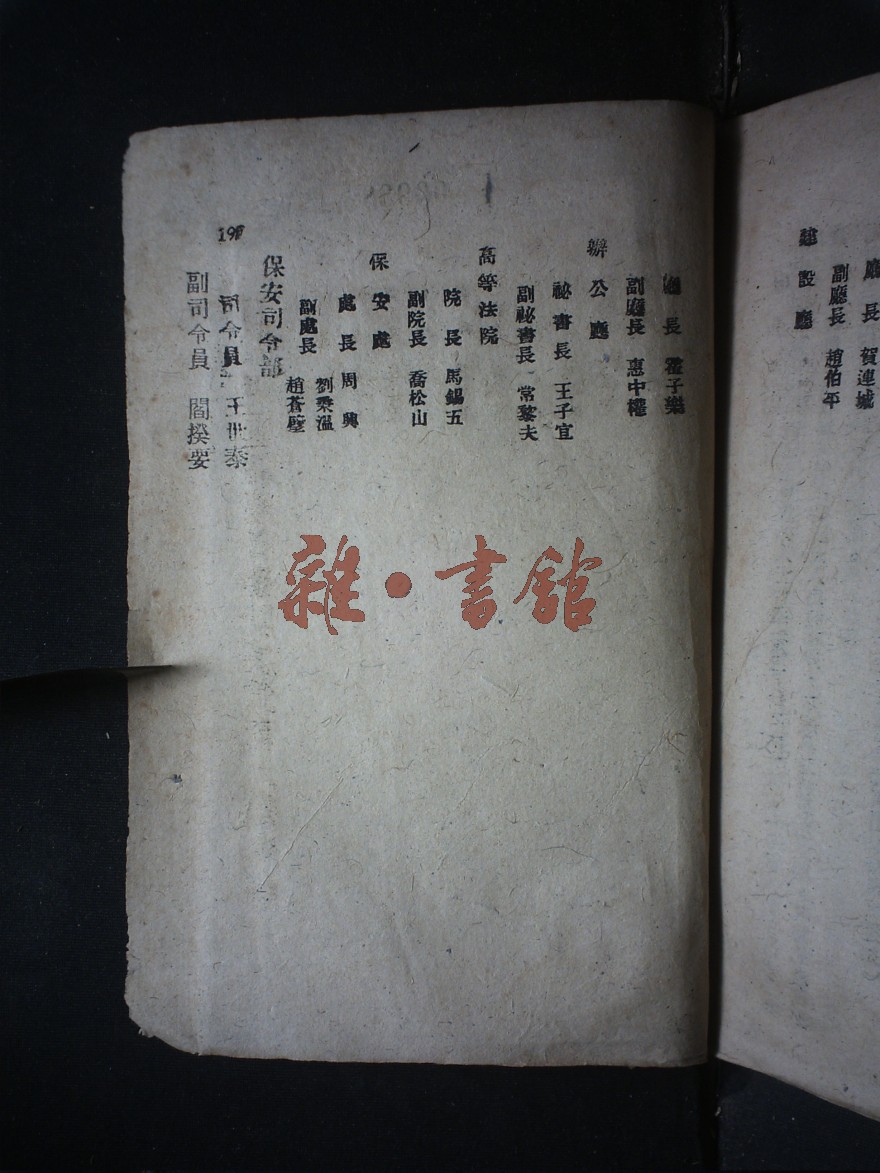 廳　長　賀連城
副廳長　趙伯平
建設廳
廳　長　霍子樂
副廳長　惠中權
辦公廳
祕書長　王子宜
副祕書長　常黎夫
高等法院
院　長　馬錫五
副院長　喬松山
保安處
處　長　周　興
劉秉溫
副處長　趙蒼壁
保安司令部
司令員　王世泰
副司令員　閻揆要
雜·書館